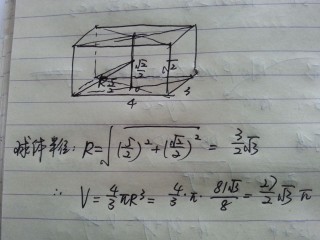 √2/2
√2
R
5/2
4
3
球体半径: R=√((5/2)²+(√2/2)²) = 3/2√3
∴ V=4/3πR³= 4/3·π·81√3/8 = 27/2√3 π